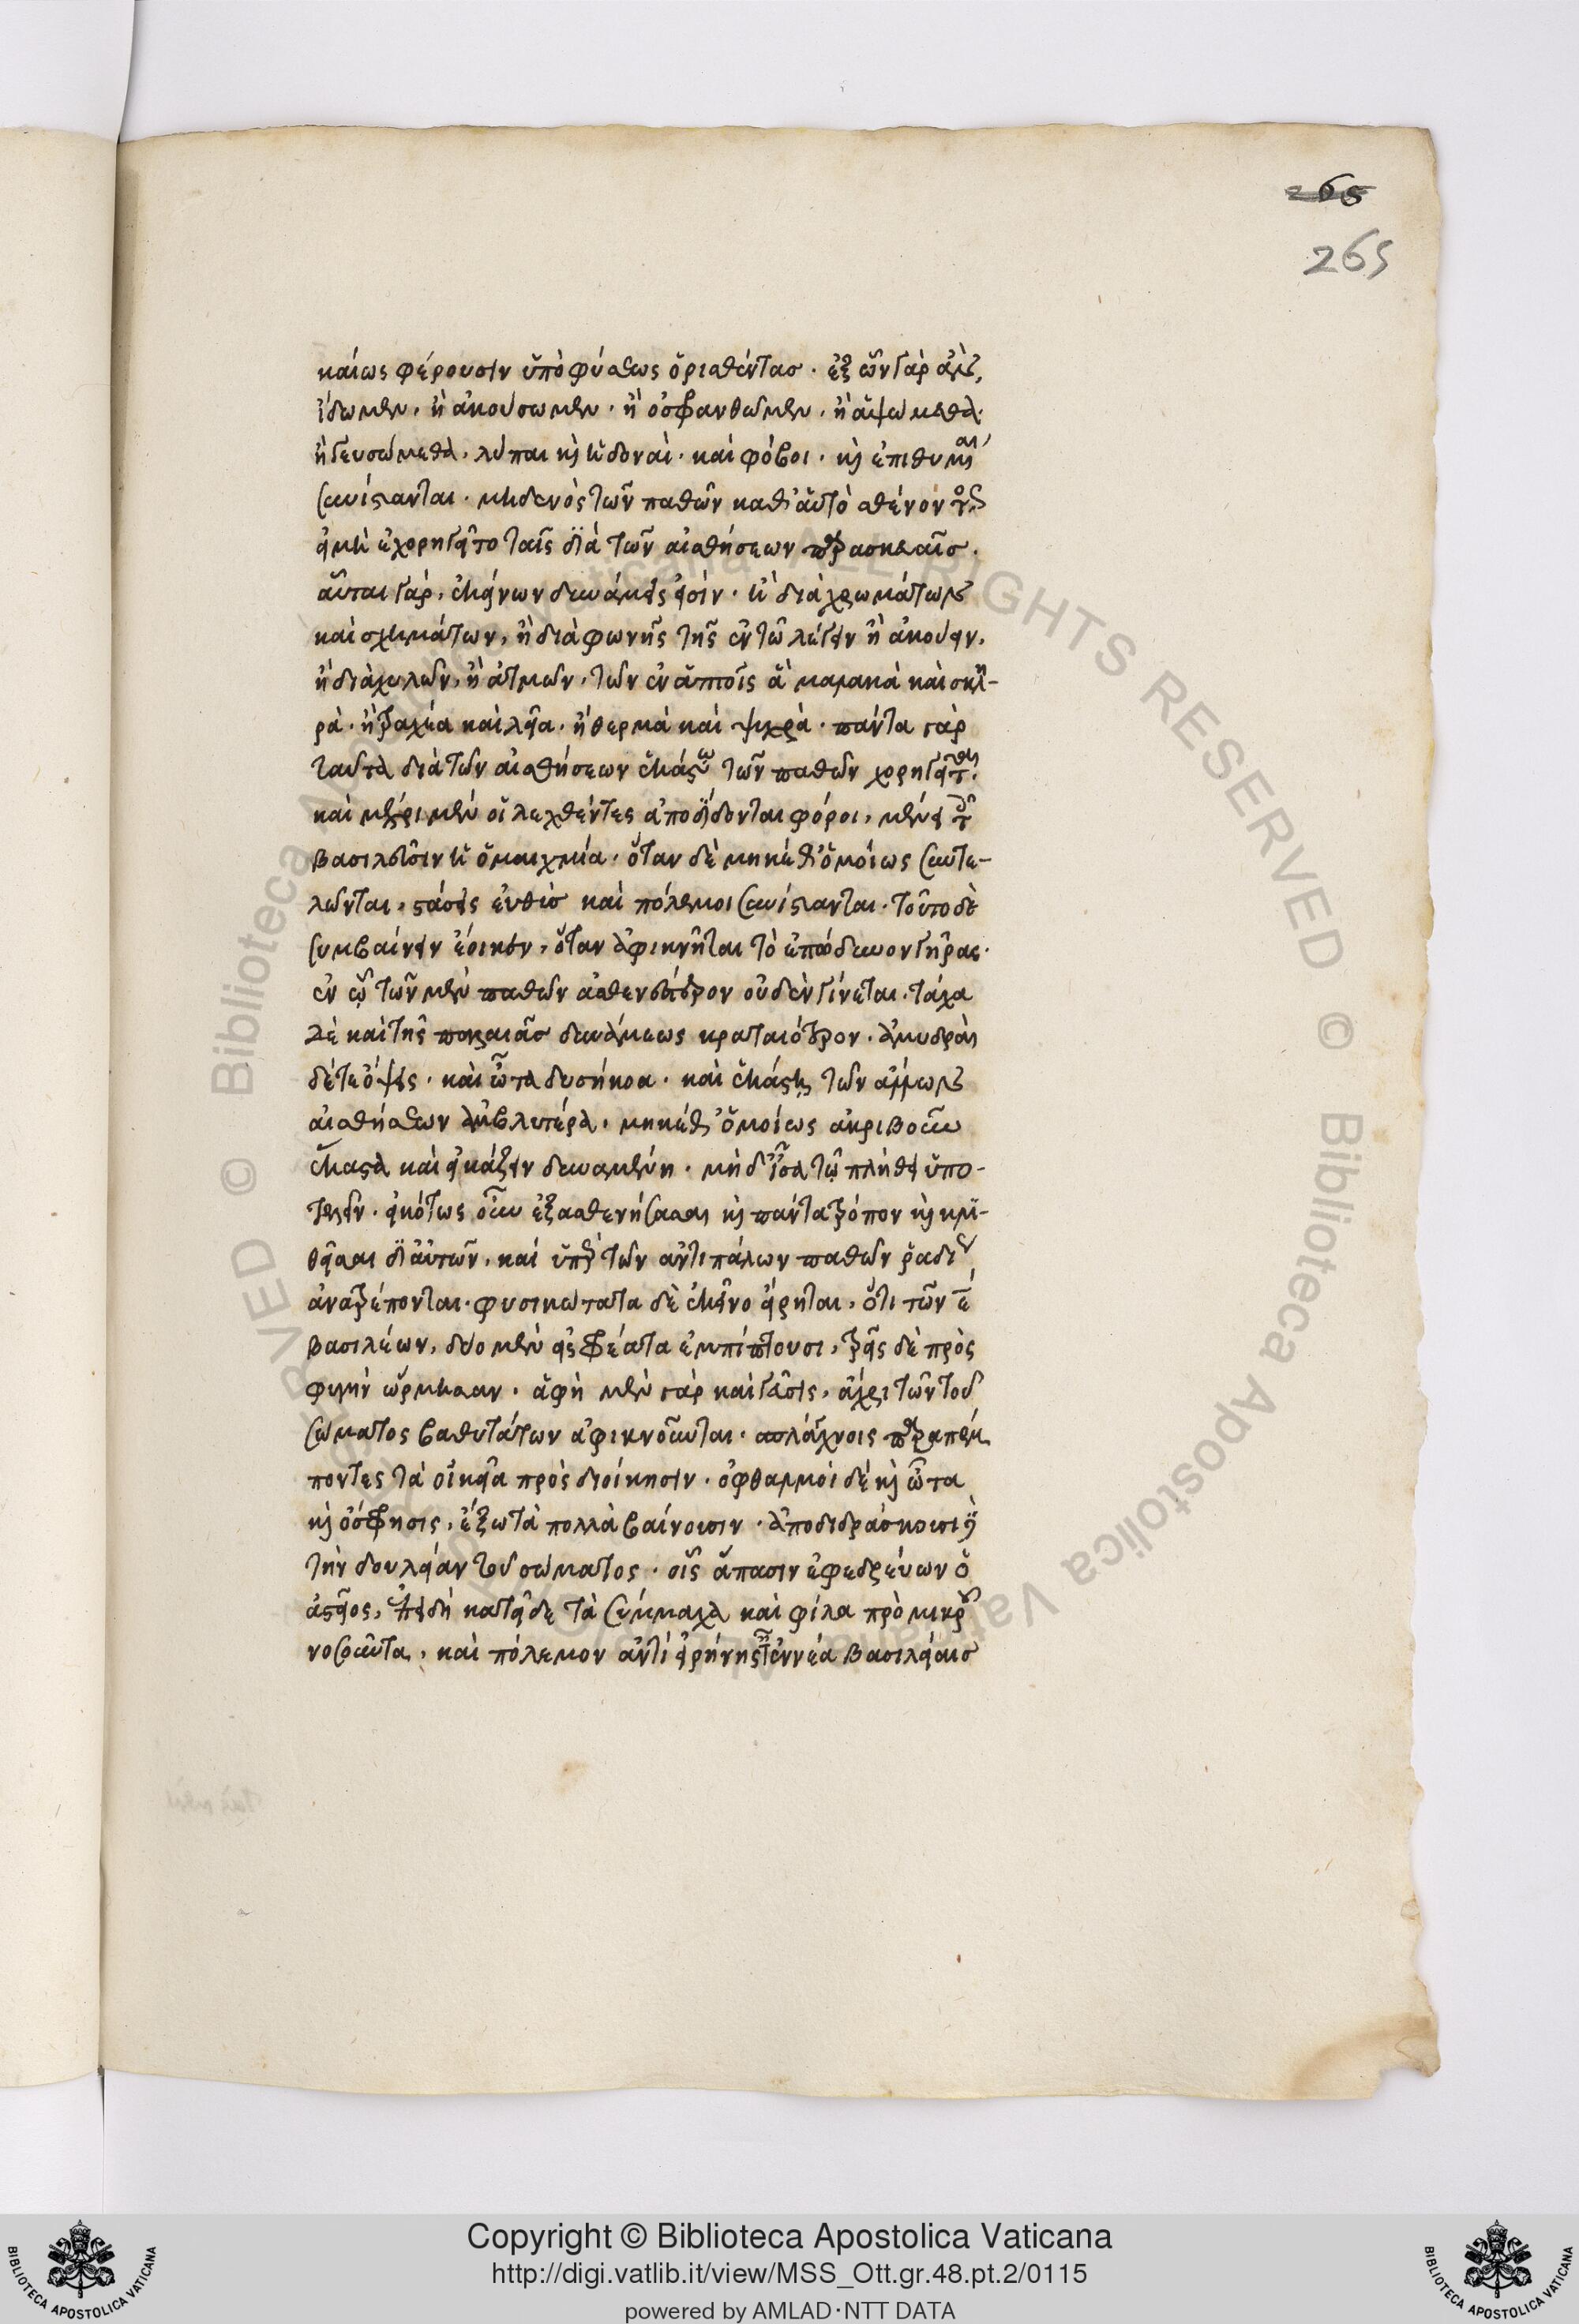 265
265
καίως φέρουσιν ὑπὸ φύσεως ὁρισθέντας · ἐξ ὧν γὰρ ἂν
ἴδωμεν, ἢ ἀκούσωμεν · ἢ ὀσφρανθῶμεν, ἢ ἁψώμεθα
ἢ γευσώμεθα, λύπαι καὶ ἡδοναὶ · καὶ φόβοι · καὶ ἐπιθυμίαι
συνίστανται · μηδενὸς τῶν παθῶν καθ' αὑτὸ σθένοντος
εἰ μὴ ἐχορηγεῖτο ταῖς διὰ τῶν αἰσθήσεων παρασκευαῖς ·
αὗται γὰρ, ἐκείνων δυνάμεις εἰσίν · ἢ διὰ χρωμάτων
καὶ σχημάτων, ἢ διὰ φωνῆς τῆς ἐν τῷ λέγειν ἢ ἀκούειν,
ἢ διὰ χυλῶν, ἢ ἀτμῶν, τῶν ἐν ἁπτοῖς ἃ μαλακὰ καὶ σκλη-
ρὰ · ἢ τραχέα καὶ λεῖα · ἢ θερμὰ καὶ ψυχρὰ · πάντα γὰρ
ταῦτα διὰ τῶν αἰσθήσεων ἑκάστῳ τῶν παθῶν χορηγεῖται ·
καὶ μέχρι μὲν οἱ λεχθέντες ἀποδίδονται φόροι, μένει τοῖς
βασιλεῦσιν ἡ ὁμαιχμία · ὅταν δὲ μηκέθ' ὁμοίως συντε-
λῶνται, στάσεις εὐθὺς καὶ πόλεμοι συνίστανται · τοῦτο δὲ
συμβαίνειν ἔοικεν, ὅταν ἀφικνῆται τὸ ἐπώδυνον γῆρας ·
ἐν ᾧ τῶν μὲν παθῶν ἀσθενέστερον οὐδὲν γίνεται · τάχα
δὲ καὶ τῆς παλαιᾶς δυνάμεως κραταιότερον · ἀμυδραὶ
δέ τε ὄψεις · καὶ ὦτα δυσήκοα · καὶ ἑκάστη τῶν ἄλλων
αἰσθήσεων ἀμβλυτέρα, μηκέθ' ὁμοίως ἀκριβοῦν
ἕκαστα καὶ δικάζειν δυναμένη · μὴ δ' ἴσα τῷ πλήθει ὑπο-
τελεῖν · εἰκότως οὖν ἐξασθενήσασαι καὶ πάντα τρόπον καὶ κλι-
θεῖσαι δι' αὐτῶν, καὶ ὑπὸ τῶν ἀντιπάλων παθῶν ῥᾳδίως
ἀνατρέπονται · φυσικώτατα δὲ ἐκεῖνο εἴρηται, ὅτι τῶν ε
βασιλέων, δύο μὲν εἰς φρέατα ἐμπίπτουσι, τρεῖς δὲ πρὸς
φυγὴν ὥρμησαν · ἁφὴ μὲν γὰρ καὶ γεῦσις, ἄχρι τῶν τοῦ
σώματος βαθυτάτων ἀφικνοῦνται · σπλάγχνοις παραπέμ
ποντες τὰ οἰκεῖα πρὸς διοίκησιν · ὀφθαλμοὶ δὲ καὶ ὦτα
καὶ ὄσφρησις, ἔξω τὰ πολλὰ βαίνουσιν · ἀποδιδράσκουσαι
τὴν δουλείαν τοῦ σώματος · οἷς ἅπασιν ἐφεδρεύων ὁ
ἀστεῖος, ἐπειδὴ κατεῖδε τὰ σύμμαχα καὶ φίλα πρὸ μικροῦ
νοσοῦντα, καὶ πόλεμον ἀντὶ εἰρήνης ταῖς ἐννέα βασιλείαις
Copyright © Biblioteca Apostolica Vaticana
http://digi.vatlib.it/view/MSS_Ott.gr.48.pt.2/0115
powered by AMLAD·NTT DATA